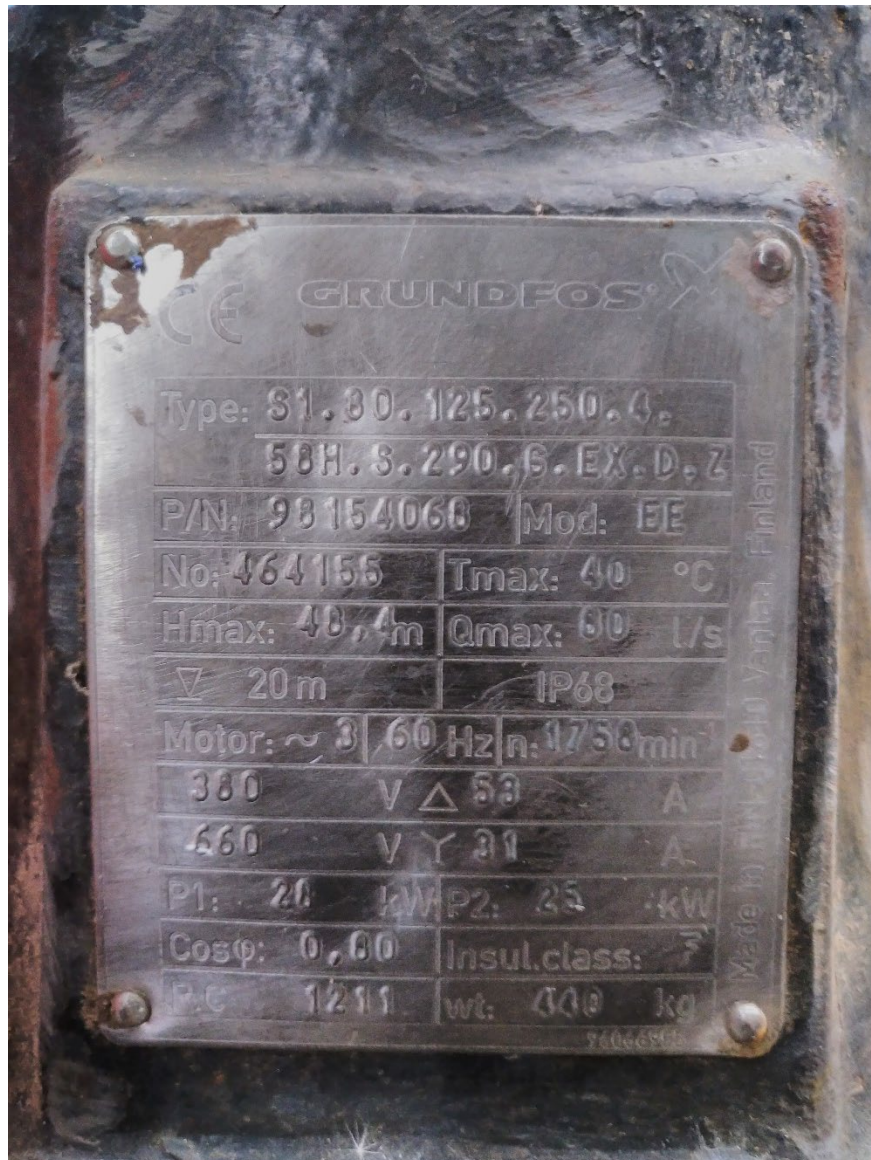 CE GRUNDFOS
Type: S1.80.125.250.4.
58H.S.290.G.EX.D.Z
P/N: 98154068 Mod: EE
No: 464155 Tmax: 40 °C
Hmax: 48,4 m Qmax: 80 l/s
20 m IP68
Motor: ~ 3 60 Hz n: 1758 min⁻¹
380 V △ 53 A
660 V Y 31 A
P1: 28 kW P2: 25 kW
Cosφ: 0,80 Insul.class: F
P.C 1211 wt: 440 kg
Made in Vantaa, Finland